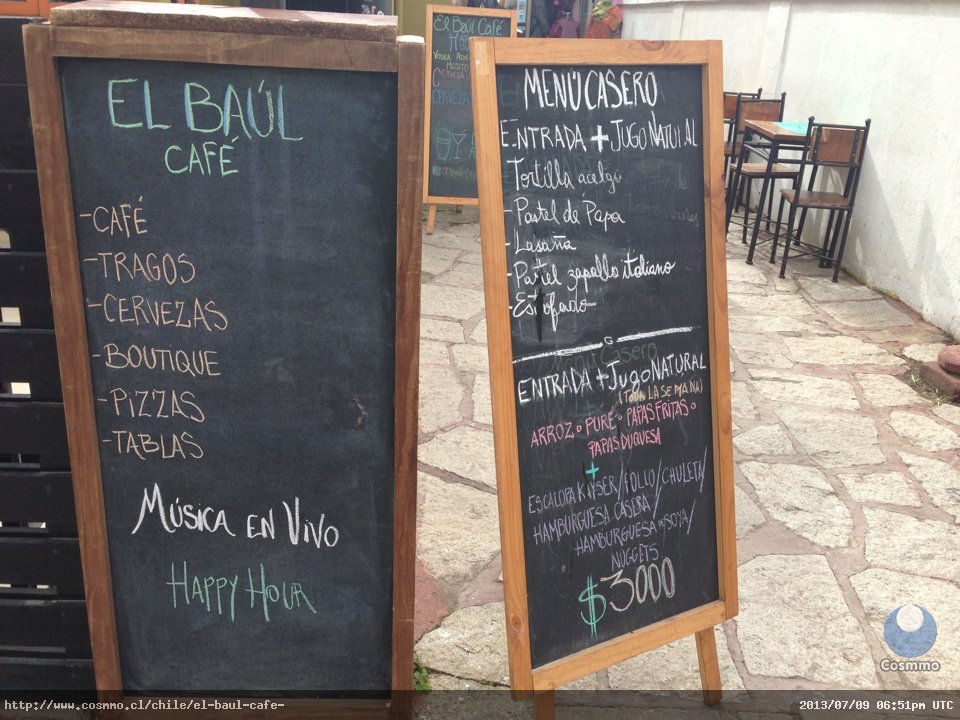 EL BAÚL
CAFÉ
-CAFÉ
-TRAGOS
-CERVEZAS
-BOUTIQUE
-PIZZAS
-TABLAS
MÚSICA EN VIVO
HAPPY HOUR
El Baúl Café
VODKA
MOJITO
CERVEZA
CERVEZA
MENÚ CASERO
ENTRADA + JUGO NATURAL
Tortilla acelga
-Pastel de Papa
-Lasaña
-Pastel zapallo italiano
-Estofado
ENTRADA + JUGO NATURAL
(TODA LA SEMANA)
ARROZ o PURÉ o PAPAS FRITAS o
PAPAS DUQUESA
+
ESCALOPA KAYSER/POLLO/CHULETA/
HAMBURGUESA CASERA/
HAMBURGUESA DE SOYA/
NUGGETS
$3000
Cosmmo
http://www.cosmmo.cl/chile/el-baul-cafe-
2013/07/09 06:51pm UTC